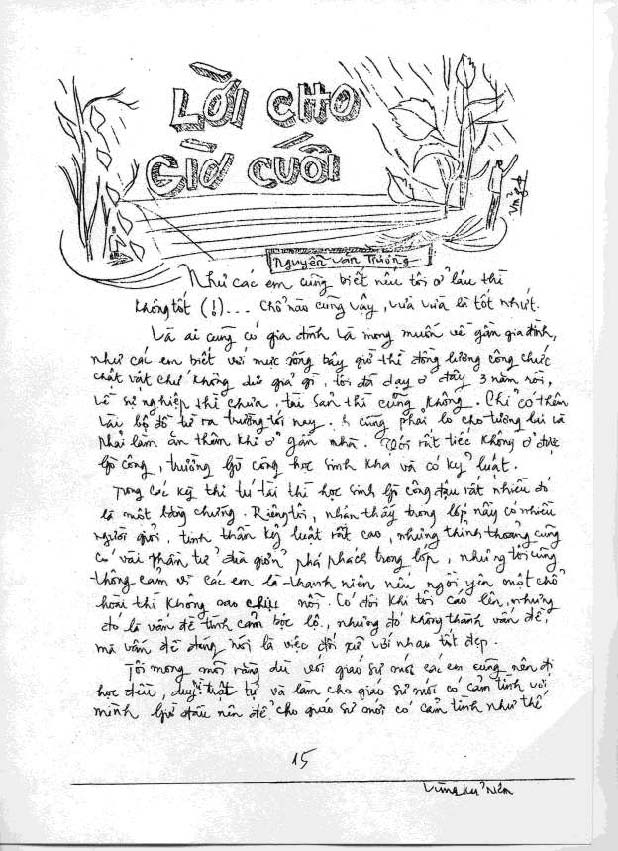 LỜI CHO
GIỜ CUỐI
Nguyễn Văn Trường
Như các em cũng biết nếu tôi ở lâu thì
không tốt (!)... Chỗ nào cũng vậy, vừa vừa là tốt nhứt.
Và ai cũng có gia đình và mong muốn về gần gia đình,
như các em biết với mức sống bây giờ thì đồng lương công chức
chật vật chứ không dư giả gì, tôi đã dạy ở đây 3 năm rồi,
về sự nghiệp thì chưa, tài sản thì cũng không. Chỉ có thêm
vài bộ đồ từ ra trường tới nay. cũng phải lo cho tương lai và
phải làm ăn thêm khi ở gần nhà. rất tiếc không ở được
Gò công, trường Gò công học sinh khá và có kỷ luật.
Trong các kỳ thi tú tài thì học sinh Gò công đậu rất nhiều đó
là một bằng chứng. Riêng tôi, nhận thấy trong lớp nầy có nhiều
người giỏi, tinh thần kỷ luật rất cao, nhưng thỉnh thoảng cũng
có vài phần tử đùa giỡn phá phách trong lớp, nhưng tôi cũng
thông cảm vì các em là thanh niên nếu ngồi yên một chỗ
hoài thì không sao chịu nổi. Có đôi khi tôi cáo lên, nhưng
đó là vấn đề tình cảm bộc lộ, nhưng đó không thành vấn đề,
mà vấn đề đáng nói là việc đối xử với nhau tốt đẹp.
Tôi mong mỏi rằng dù với giáo sư mới các em cũng nên đi
học đều, duy trì trật tự và làm cho giáo sư mới có cảm tình với
mình bước đầu nên để cho giáo sư mới có cảm tình như thế
15